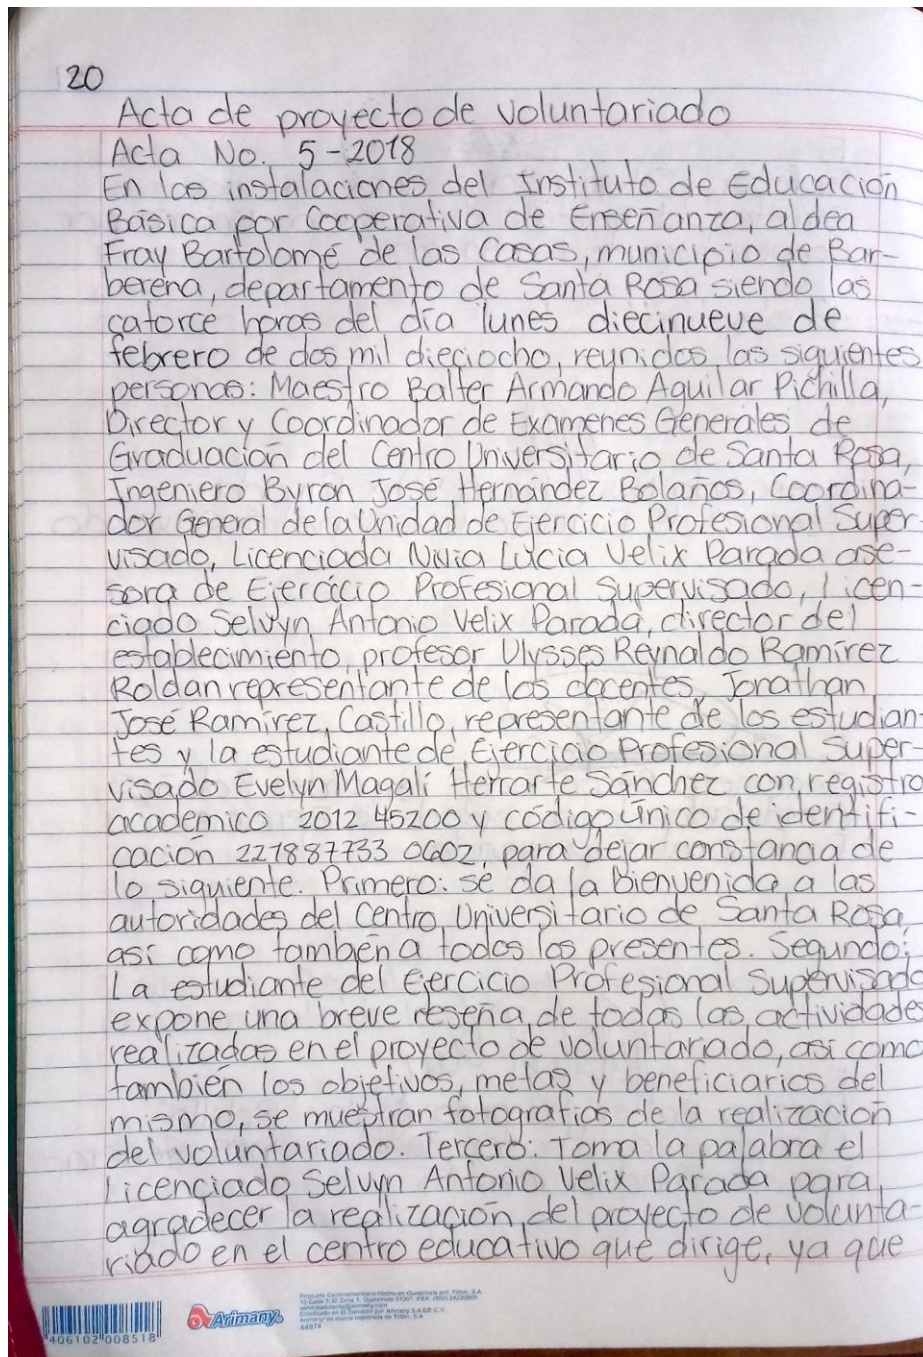 20
Acta de proyecto de voluntariado
Acta No. 5-2018
En las instalaciones del Instituto de Educación
Básica por Cooperativa de Enseñanza, aldea
Fray Bartolomé de las Casas, municipio de Bar-
berena, departamento de Santa Rosa siendo las
catorce horas del día lunes diecinueve de
febrero de dos mil dieciocho, reunidos las siguientes
personas: Maestro Balter Armando Aguilar Pichilla,
Director y Coordinador de Examenes Generales de
Graduación del Centro Universitario de Santa Rosa,
Ingeniero Byron José Hernández Bolaños, Coordina-
dor General de la Unidad de Ejercicio Profesional Super-
visado, Licenciada Nivia Lucia Velix Parada ase-
sora de Ejercicio Profesional Supervisado, Licen-
ciado Selvyn Antonio Velix Parada, director del
establecimiento, profesor Ulysses Reynaldo Ramírez
Roldan representante de los docentes, Jonathan
José Ramírez Castillo, representante de los estudian-
tes y la estudiante de Ejercicio Profesional Super-
visado Evelyn Magalí Herrarte Sánchez con registro
academico 2012 45200 y código único de identifi-
cación 221887733 0602, para dejar constancia de
lo siguiente. Primero: se da la bienvenida a las
autoridades del Centro Universitario de Santa Rosa,
así como también a todos los presentes. Segundo:
La estudiante del Ejercicio Profesional Supervisado
expone una breve reseña de todas las actividades
realizadas en el proyecto de voluntariado, así como
también los objetivos, metas y beneficiarios del
mismo, se muestran fotografías de la realización
del voluntariado. Tercero: Toma la palabra el
Licenciado Selvyn Antonio Velix Parada para
agradecer la realización del proyecto de volunta-
riado en el centro educativo que dirige, ya que
406102 008518
Arimany
44874